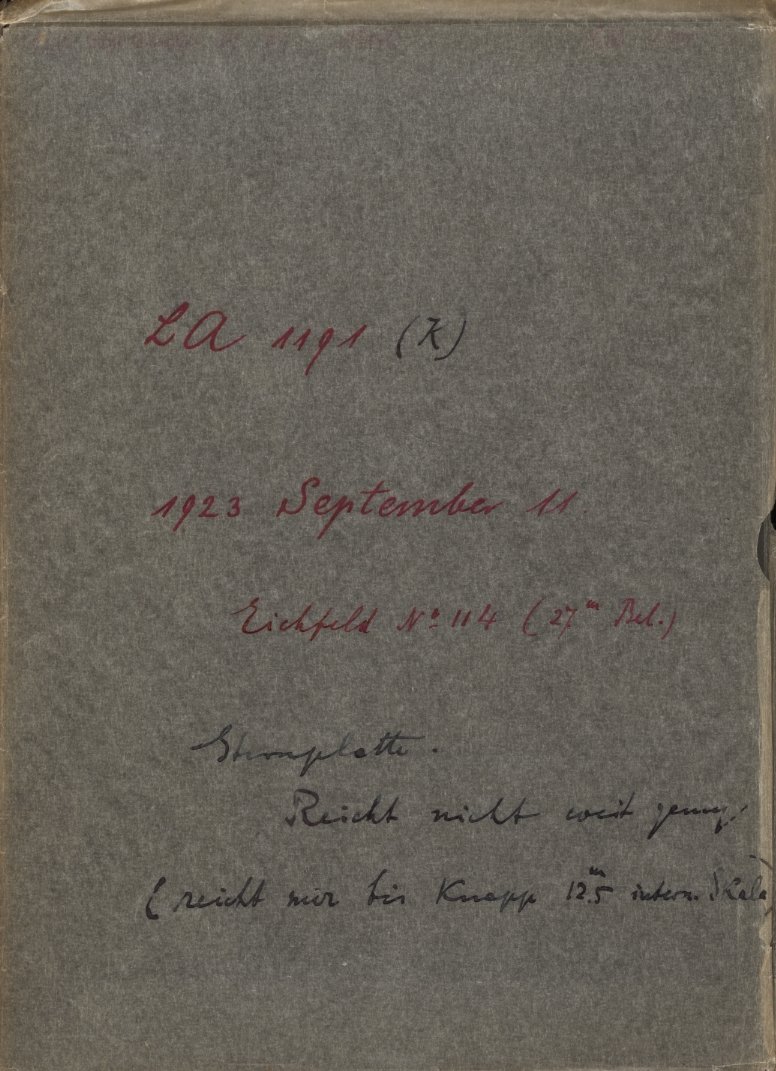 LA 1191 (K)
1923 September 11
Eichfeld Nº 114 (27ᵐ Bel.)
Sternplatte.
Reicht nicht weit genug.
(reicht nur bis knapp 12ᵐ.5 intern. Skala)